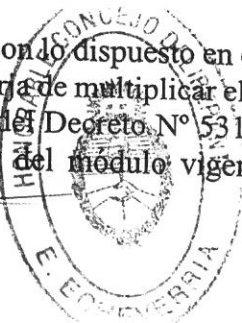 on lo dispuesto en
ría de multiplicar el
del Decreto Nº 531
del módulo vigen
H. CONCEJO D
E. ECHEVERRIA